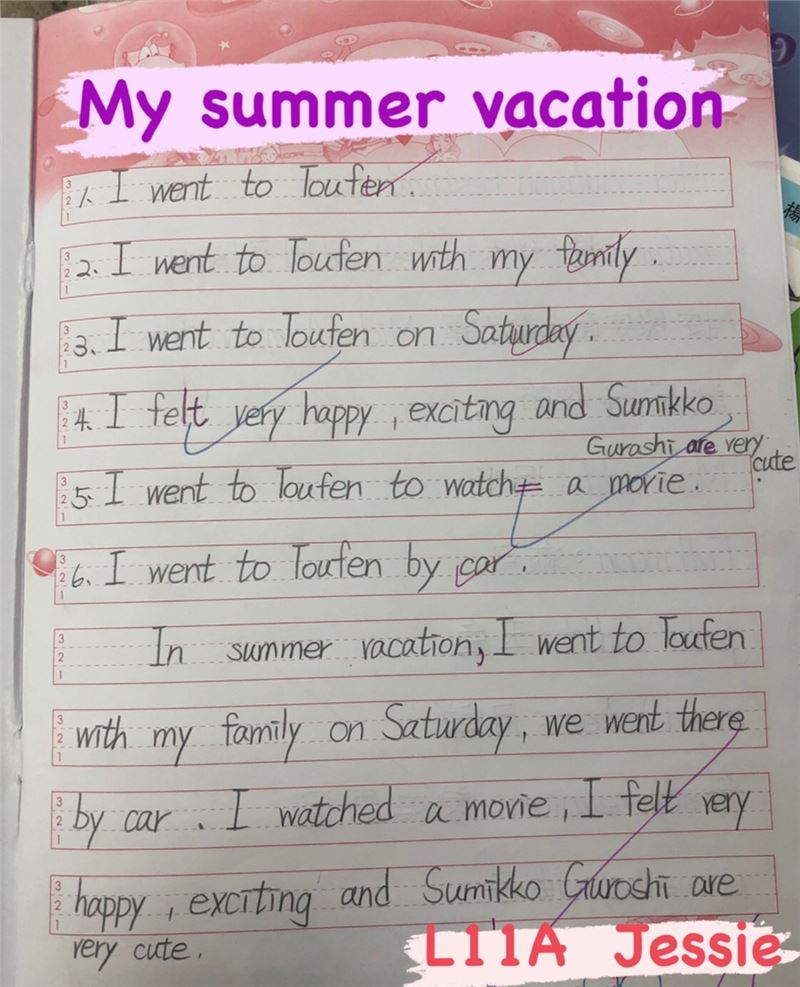 My summer vacation
1. I went to Toufen.
2. I went to Toufen with my family.
3. I went to Toufen on Saturday.
4. I felt very happy, exciting and Sumikko
Gurashi are very
cute.
5. I went to Toufen to watch a movie.
6. I went to Toufen by car.
In summer vacation, I went to Toufen
with my family on Saturday, we went there
by car. I watched a movie, I felt very
happy, exciting and Sumikko Guroshi are
very cute.
L11A Jessie
楊